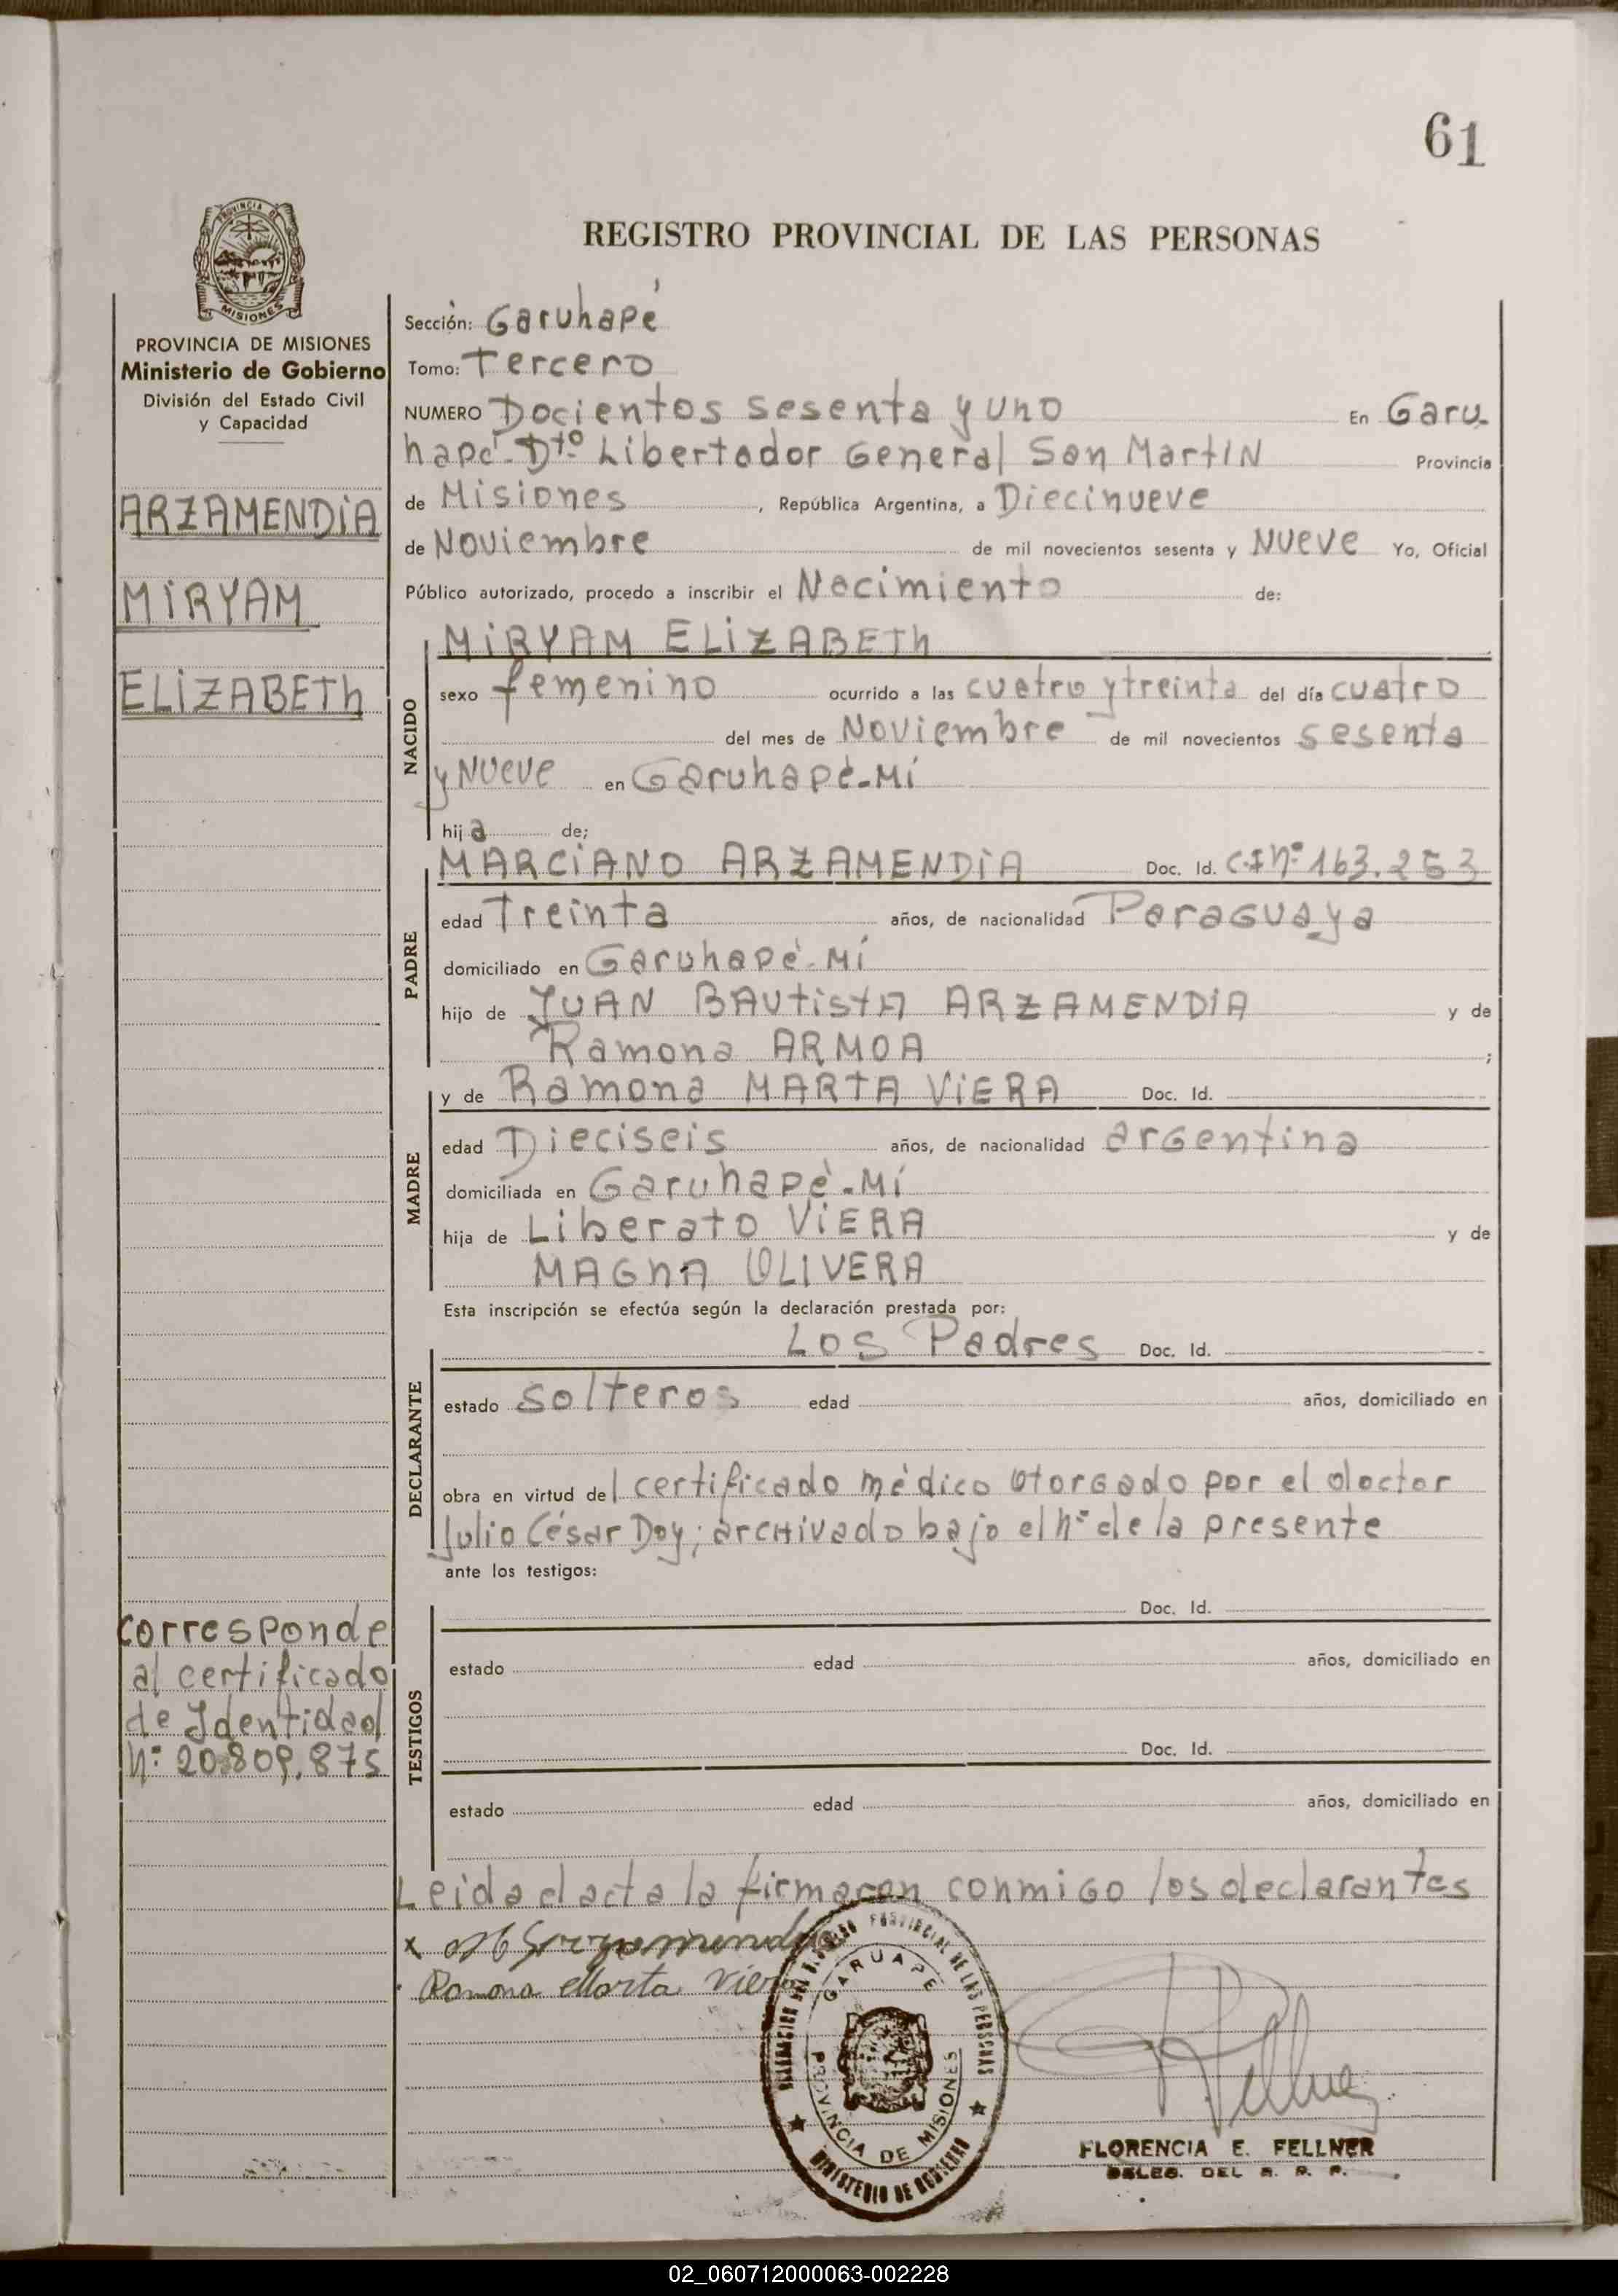 61
PROVINCIA DE
MISIONES
REGISTRO PROVINCIAL DE LAS PERSONAS
PROVINCIA DE MISIONES
Ministerio de Gobierno
División del Estado Civil
y Capacidad
ARZAMENDIA
MIRYAM
ELIZABETh
Sección: Garuhapé
Tomo: Tercero
NUMERO Docientos sesenta y uno En Garu-
hapé-Dto. Libertador General San MartIN Provincia
de Misiones, República Argentina, a Diecinueve
de Noviembre de mil novecientos sesenta y NUEVE Yo, Oficial
Público autorizado, procedo a inscribir el Nacimiento de:
NACIDO
MIRYAM ELIZABETh
sexo femenino ocurrido a las cuatro y treinta del día cuatro
del mes de Noviembre de mil novecientos sesenta
y NUEVE en Garuhapé-Mí
hija de;
PADRE
MARCIANO ARZAMENDIA Doc. Id. C.I nº 163.253
edad Treinta años, de nacionalidad Paraguaya
domiciliado en Garuhapé-Mí
hijo de JUAN BAUtistA ARZAMENDIA y de
Ramona ARMOA ;
MADRE
y de Ramona MARTA VIERA Doc. Id.
edad Dieciseis años, de nacionalidad argentina
domiciliada en Garuhapé-Mí
hija de Liberato VIERA y de
MAGNA OLIVERA
Esta inscripción se efectúa según la declaración prestada por:
DECLARANTE
Los Padres Doc. Id.
estado solteros edad años, domiciliado en
obra en virtud del certificado médico otorgado por el doctor
Julio César Doy; archivado bajo el nº de la presente
ante los testigos:
TESTIGOS
Doc. Id.
estado edad años, domiciliado en
Doc. Id.
estado edad años, domiciliado en
corresponde
al certificado
de Identidad
Nº: 20.809.875
Leida el acta la firmaron conmigo los declarantes
x M Arzamendia
Ramona Marta Viera
DELEGACION DEL REGISTRO PROVINCIAL DE LAS PERSONAS
GARUAPE
PROVINCIA DE MISIONES
MINISTERIO DE GOBIERNO
Fellner
FLORENCIA E. FELLNER
DELEG. DEL R. P. P.
02_060712000063-002228